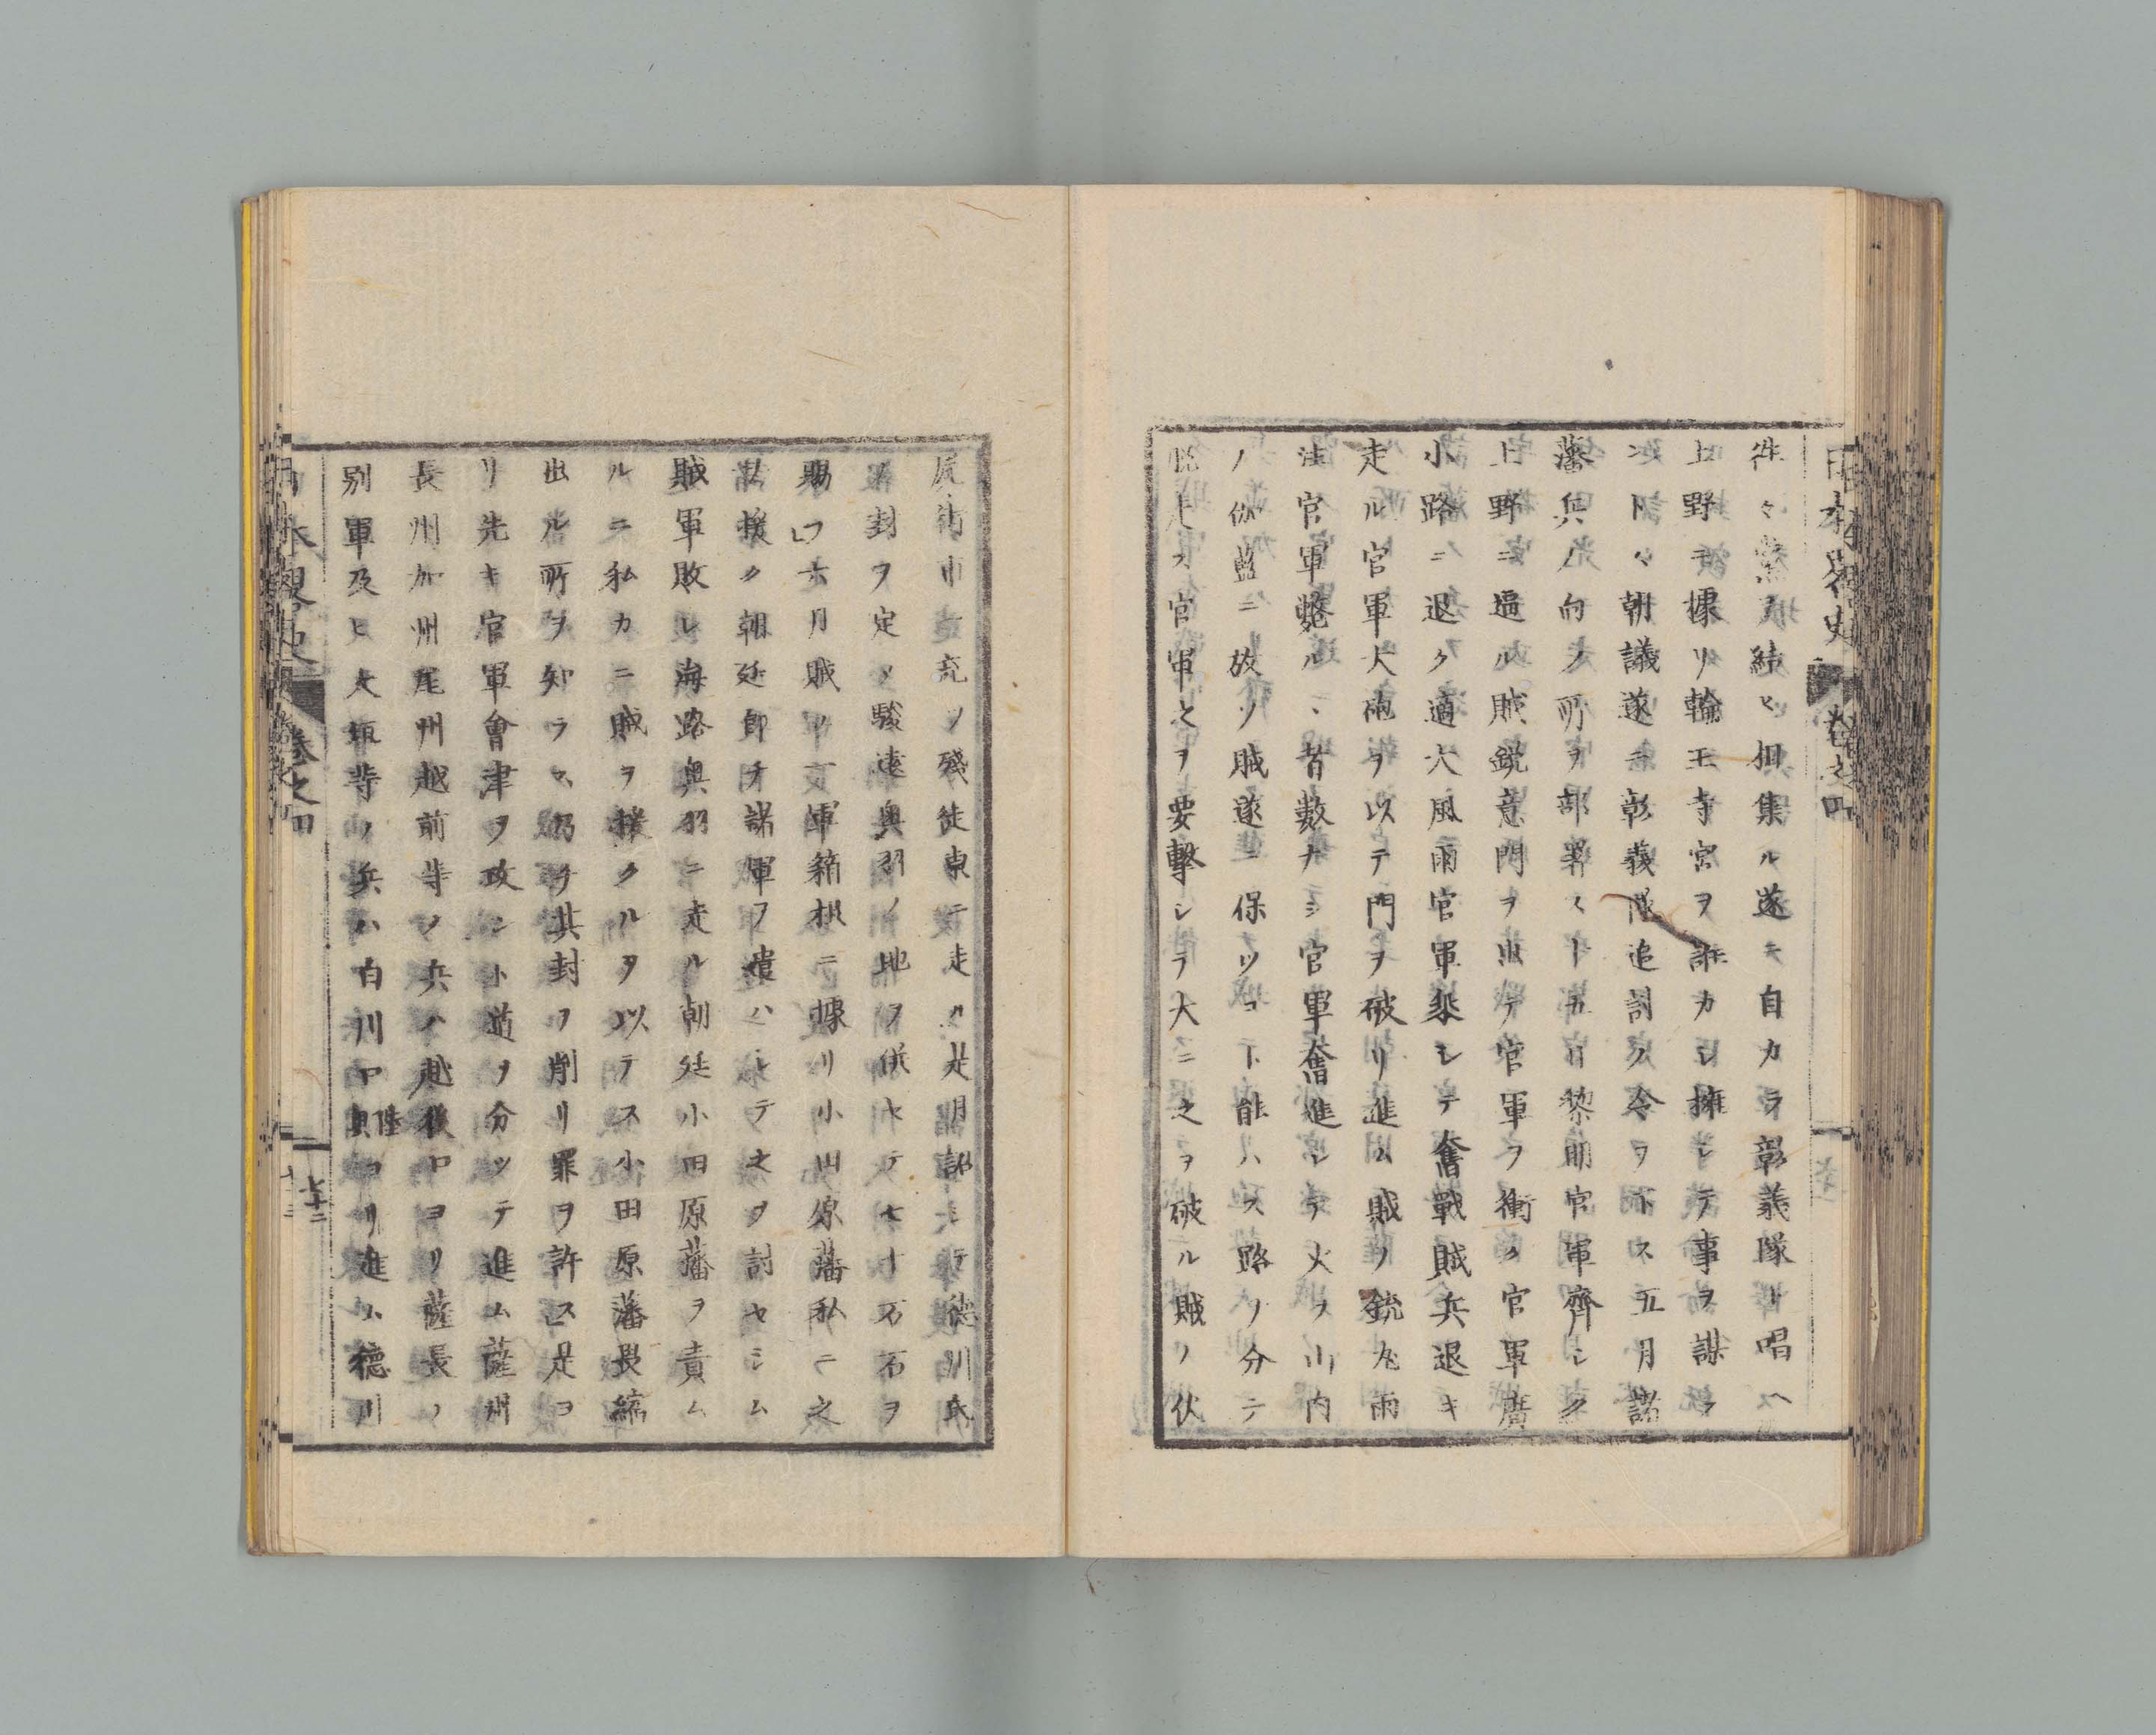 日本略史 卷之四
往々黨ヲ結ヒ相集ル遂ニ自カラ彰義隊ト唱ヘ
上野ニ據リ輪王寺宮ヲ誰カシ擁シテ事ヲ謀ラ
ントス朝議遂ニ彰義隊追討ノ令ヲ下ス五月諸
藩兵ノ向フ所ヲ部署ス十五日黎明官軍齊シク
上野ニ逼ル賊鋭意門ヲ出テ官軍ヲ衝ク官軍廣
小路ニ退ク適大風雨官軍乘シテ奮戰賊兵退キ
走ル官軍大砲ヲ以テ門ヲ破リ進ム賊ノ銃丸雨
注官軍斃ルヽ者數ナシ官軍奮進シテ火ヲ山內
ノ伽藍ニ放ツ賊遂ニ保ツコト能ハス路ヲ分テ
脱走ス官軍之ヲ要擊シテ大ニ之ヲ破ル賊ノ伏
尸街市ニ充ツ殘徒東ニ走ル是月詔シテ德川氏
ノ封ヲ定メ駿遠奥羽ノ地ヲ併セテ七十万石ヲ
賜フ六月賊ノ一軍箱根ニ據リ小田原藩私ニ之
ヲ援ク朝廷卽チ諸軍ヲ遣ハシテ之ヲ討セシム
賊軍敗レ海路奥羽ニ走ル朝廷小田原藩ヲ責ム
ルニ私カニ賊ヲ援クルヲ以テス小田原藩畏縮
出ル所ヲ知ラス乃チ其封ヲ削リ罪ヲ許ス是ヨ
リ先キ官軍會津ヲ攻ン卜道ヲ分ツテ進ム薩州
長州加州尾州越前等ノ兵ハ越後口ヨリ薩長ノ
別軍及ヒ大垣等ノ兵ハ白川口陸奥ヨリ進ム德川
日本略史 卷之四 七十二